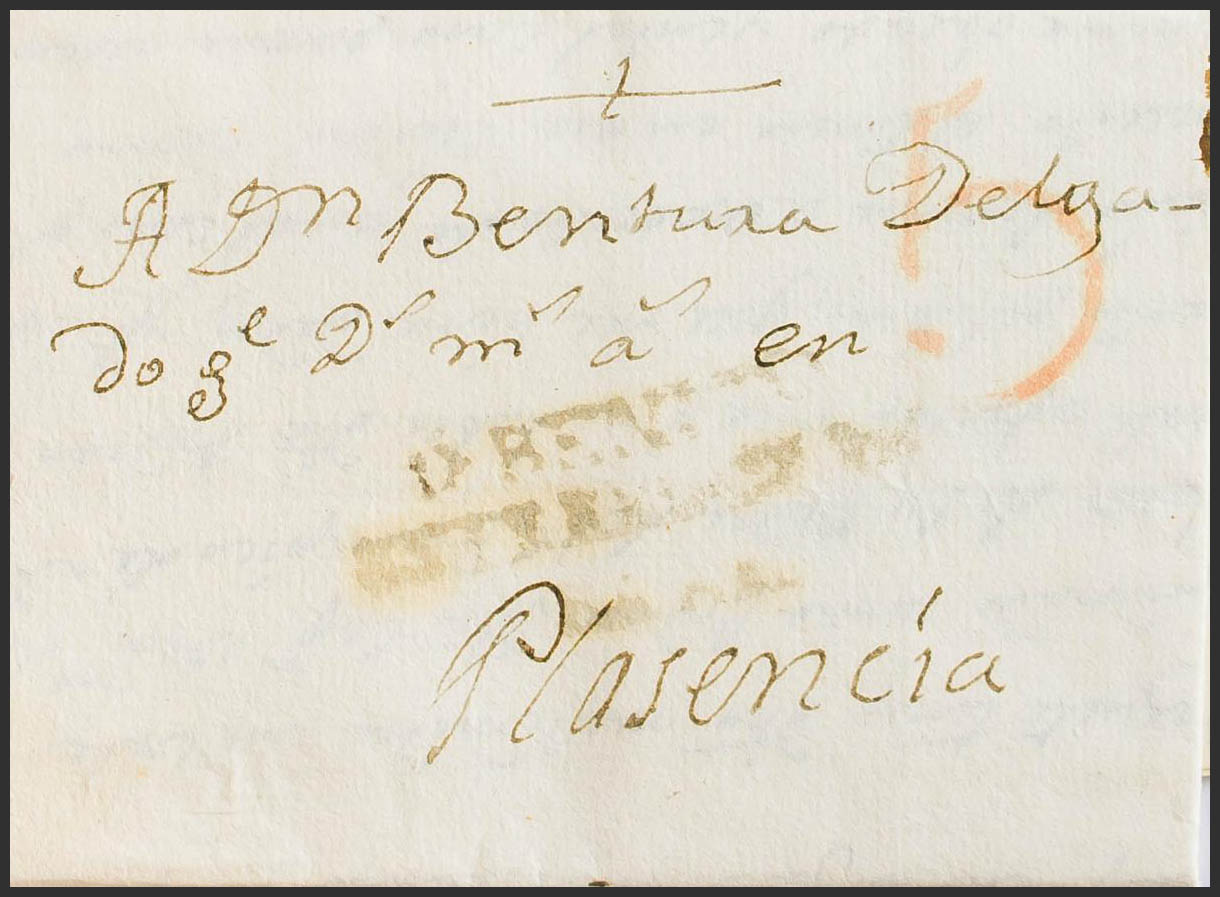 A Dn Bentura Delga-
do ge Ds ms as en
Plasencia
5